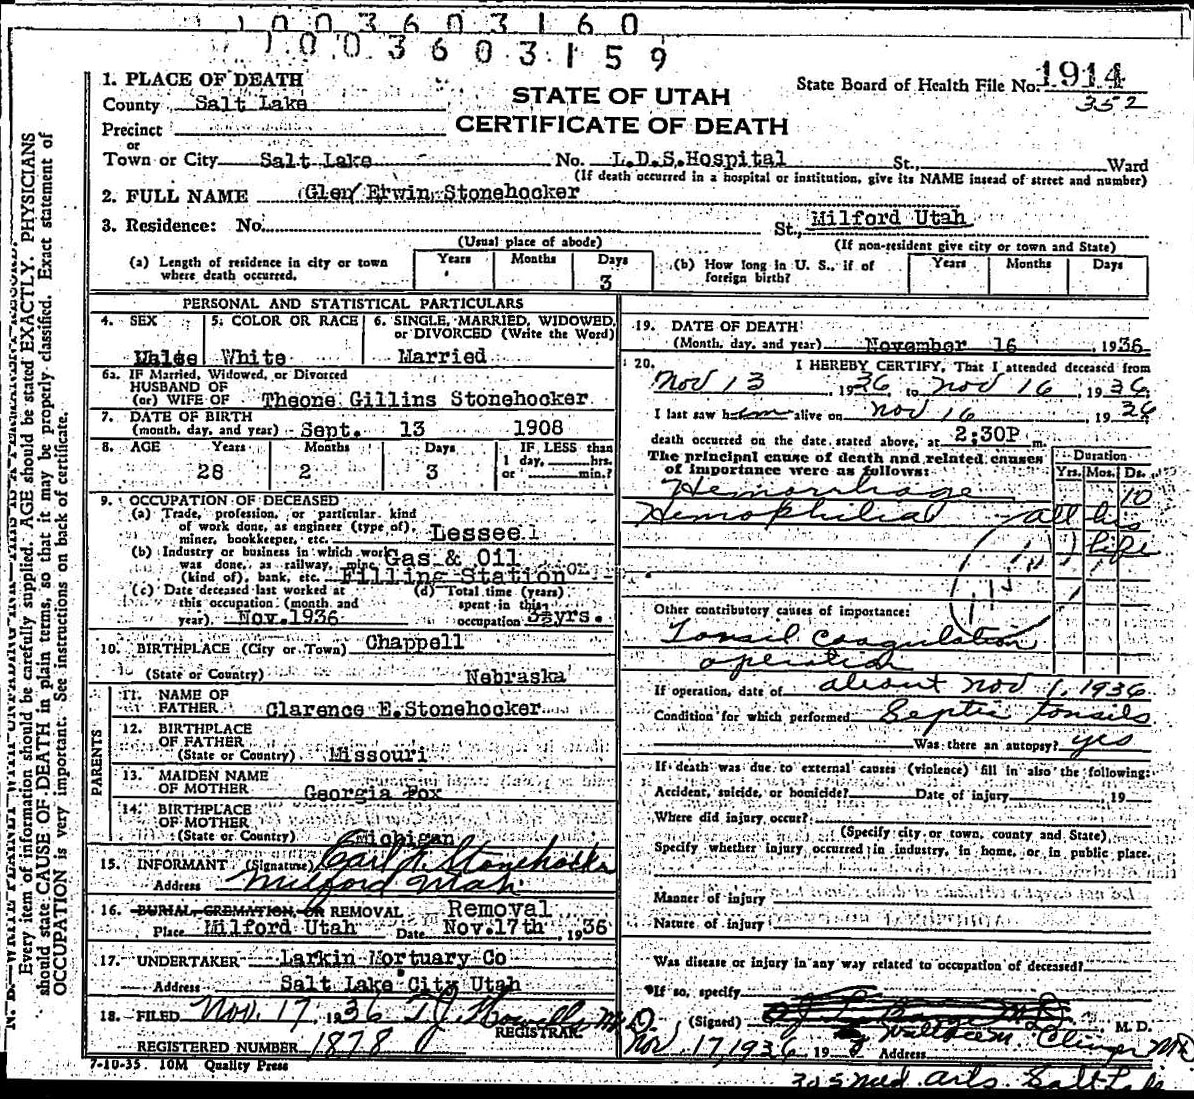 1003603160
1003603159
1. PLACE OF DEATH
STATE OF UTAH
State Board of Health File No. 1914
352
County Salt Lake
CERTIFICATE OF DEATH
Precinct
or
Town or City Salt Lake No. L.D.S.Hospital St., Ward
(If death occurred in a hospital or institution, give its NAME instead of street and number)
2. FULL NAME Glen Erwin Stonehocker
3. Residence: No. St., Milford Utah
(Usual place of abode) (If non-resident give city or town and State)
(a) Length of residence in city or town where death occurred. Years Months Days 3
(b) How long in U. S., if of foreign birth? Years Months Days
PERSONAL AND STATISTICAL PARTICULARS
4. SEX 5. COLOR OR RACE 6. SINGLE, MARRIED, WIDOWED, or DIVORCED (Write the Word)
White Married
6a. IF Married, Widowed, or Divorced
HUSBAND OF
(or) WIFE OF Theone Gillins Stonehocker
7. DATE OF BIRTH
(month, day, and year) Sept. 13 1908
8. AGE Years Months Days IF LESS than
1 day, hrs.
or min.?
28 2 3
9. OCCUPATION OF DECEASED
(a) Trade, profession, or particular kind
of work done, as engineer (type of),
miner, bookkeeper, etc. Lessee
(b) Industry or business in which work Gas & Oil
was done, as railway, mine
(kind of), bank, etc. Filling Station
(c) Date deceased last worked at
this occupation (month and
year) Nov.1936
(d) Total time (years)
spent in this
occupation 3½yrs.
10. BIRTHPLACE (City or Town) Chappell
(State or Country) Nebraska
PARENTS
11. NAME OF
FATHER Clarence E.Stonehocker
12. BIRTHPLACE
OF FATHER
(State or Country) Missouri
13. MAIDEN NAME
OF MOTHER Georgia Fox
14. BIRTHPLACE
OF MOTHER
(State or Country) Michigan
15. INFORMANT (Signature) Earl Stonehocker
Address Milford Utah
16. BURIAL, CREMATION, OR REMOVAL Removal
Place Milford Utah Date Nov.17th, 1936
17. UNDERTAKER Larkin Mortuary Co
Address Salt Lake City Utah
18. FILED Nov. 17 1936 M.D.
REGISTRAR
REGISTERED NUMBER 1878
7-10-35. 10M Quality Press
19. DATE OF DEATH
(Month, day, and year) November 16, 1936
20. I HEREBY CERTIFY, That I attended deceased from
Nov 13, 1936, to Nov 16, 1936,
I last saw him alive on Nov 16, 1936
death occurred on the date stated above, at 2:30P m.
The principal cause of death and related causes
of importance were as follows:
Duration
Yrs. Mos. Ds.
Hemorrhage 10
Hemophilia all his
life
Other contributory causes of importance:
Tonsil coagulation
operation
If operation, date of about Nov 1, 1936
Condition for which performed Septic tonsils
Was there an autopsy? yes
If death was due to external causes (violence) fill in also the following:
Accident, suicide, or homicide? Date of injury, 19
Where did injury occur?
(Specify city or town, county and State)
Specify whether injury occurred in industry, in home, or in public place.
Manner of injury
Nature of injury
Was disease or injury in any way related to occupation of deceased?
If so, specify
(Signed) M. D.
Nov. 17, 1936 19 Address
305 Med. Arts. Salt Lake
Every item of information should be carefully supplied. AGE should be stated EXACTLY. PHYSICIANS
should state CAUSE OF DEATH in plain terms, so that it may be properly classified. Exact statement of
OCCUPATION is very important. See instructions on back of certificate.